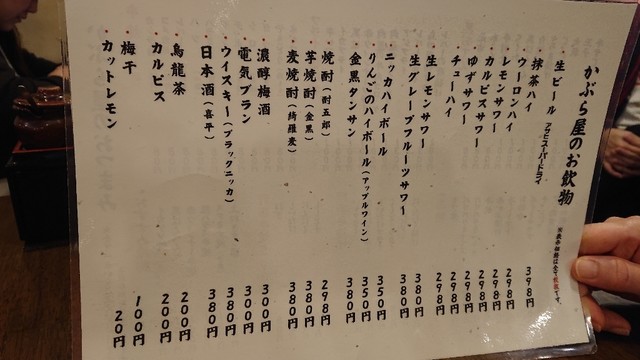 かぶら屋のお飲物
※表示価格は全て税抜です。
・生ビール アサヒスーパードライ 398円
・抹茶ハイ 298円
・ウーロンハイ 298円
・レモンサワー 298円
・カルピスサワー 298円
・ゆずサワー 298円
・チューハイ 298円
・生レモンサワー 380円
・生グレープフルーツサワー 380円
・ニッカハイボール 350円
・りんごのハイボール（アップルワイン） 350円
・金黒タンサン 380円
・焼酎（酎五郎） 298円
・芋焼酎（金黒） 380円
・麦焼酎（綺羅麦） 380円
・濃醇梅酒 300円
・電気ブラン 300円
・ウイスキー（ブラックニッカ） 380円
・日本酒（喜平） 380円
・烏龍茶 200円
・カルピス 200円
・梅干 100円
・カットレモン 20円